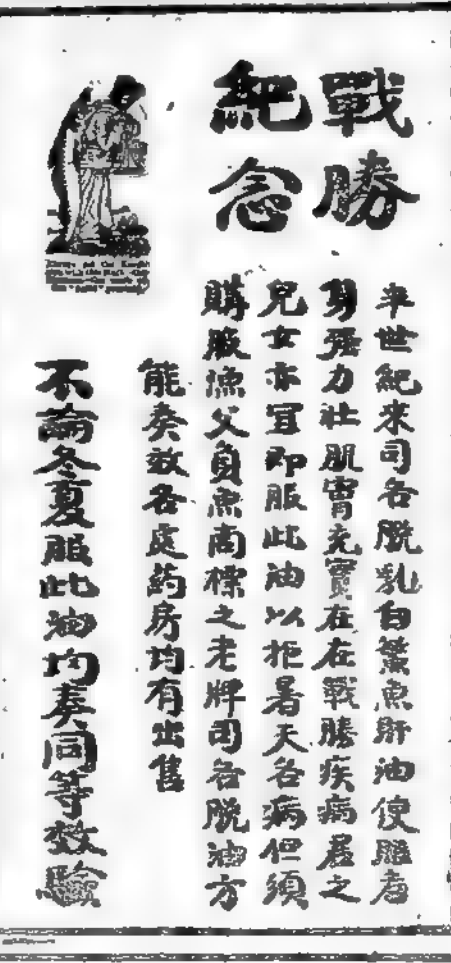 戰勝
紀念
半世紀來司各脫乳白鰵魚肝油使服者
身强力壯肌膚充實在在戰勝疾病君之
兒女亦宜卽服此油以拒暑天各病但須
購服漁父負魚商標之老牌司各脫油方
能奏效各處药房均有出售
不論冬夏服此油均奏同等效驗